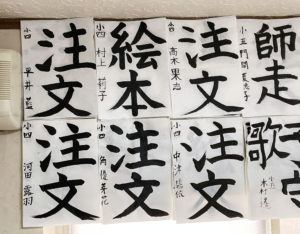 注文
小四 平井 藍
絵本
小四 村上 莉子
注文
高木 果志
師走
小五 門間
注文
小四 河田 露羽
注文
小四 角 優芽花
注文
小四 中津
歌
小五 木村